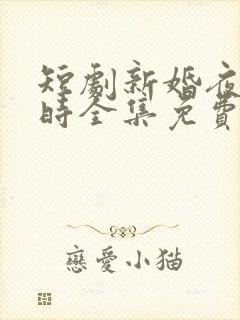 短劇新婚夜
時全集免費
戀愛小猫